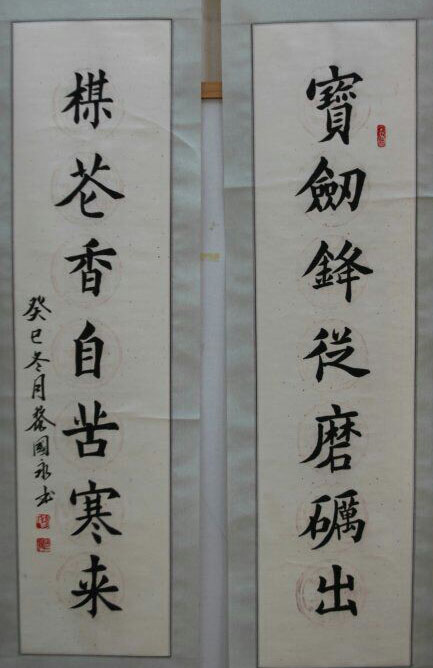 寶劒鋒從磨礪出
楳苍香自苦寒来
癸巳冬月蔡國永书